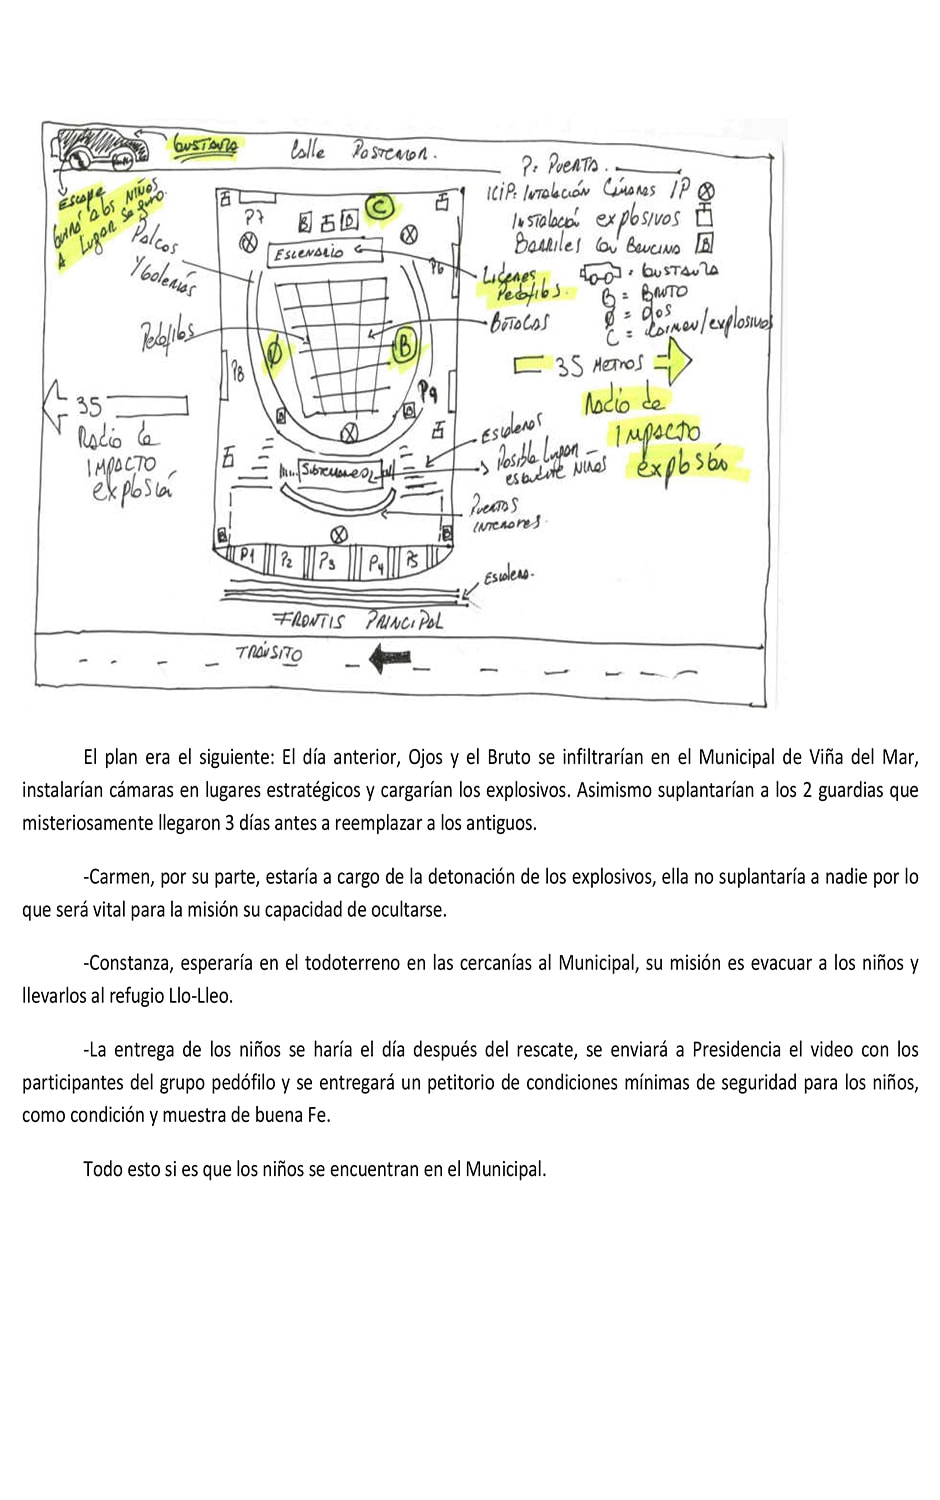 GUSTAVO
Calle Posterior.
P: Puerta.
ICIP: Intalación Cámaras IP
Instalació explosivos
Barriles con Bencina B
Escape
a los Niños
A Lugar Seguro
P7
B
B
C
Palcos
Y Galerías
ESCENARIO
P6
Líderes
Pedófilos.
= GUSTAVO
B = BRUTO
Ø = OJOS
C = Carmen/explosivos
Pedófilos
Butacas
Ø
B
P8
35 METROS
P9
Radio de
IMPACTO
explosión
35
Radio de
IMPACTO
explosió
B
B
Escaleras
Posible Lugar
Niños
Puertas
interiores.
B
B
P1
P2
P3
P4
P5
Escalera.
FRONTIS PRINCIPAL
TRÁNSITO
El plan era el siguiente: El día anterior, Ojos y el Bruto se infiltrarían en el Municipal de Viña del Mar,
instalarían cámaras en lugares estratégicos y cargarían los explosivos. Asimismo suplantarían a los 2 guardias que
misteriosamente llegaron 3 días antes a reemplazar a los antiguos.
-Carmen, por su parte, estaría a cargo de la detonación de los explosivos, ella no suplantaría a nadie por lo
que será vital para la misión su capacidad de ocultarse.
-Constanza, esperaría en el todoterreno en las cercanías al Municipal, su misión es evacuar a los niños y
llevarlos al refugio Llo-Lleo.
-La entrega de los niños se haría el día después del rescate, se enviará a Presidencia el video con los
participantes del grupo pedófilo y se entregará un petitorio de condiciones mínimas de seguridad para los niños,
como condición y muestra de buena Fe.
Todo esto si es que los niños se encuentran en el Municipal.